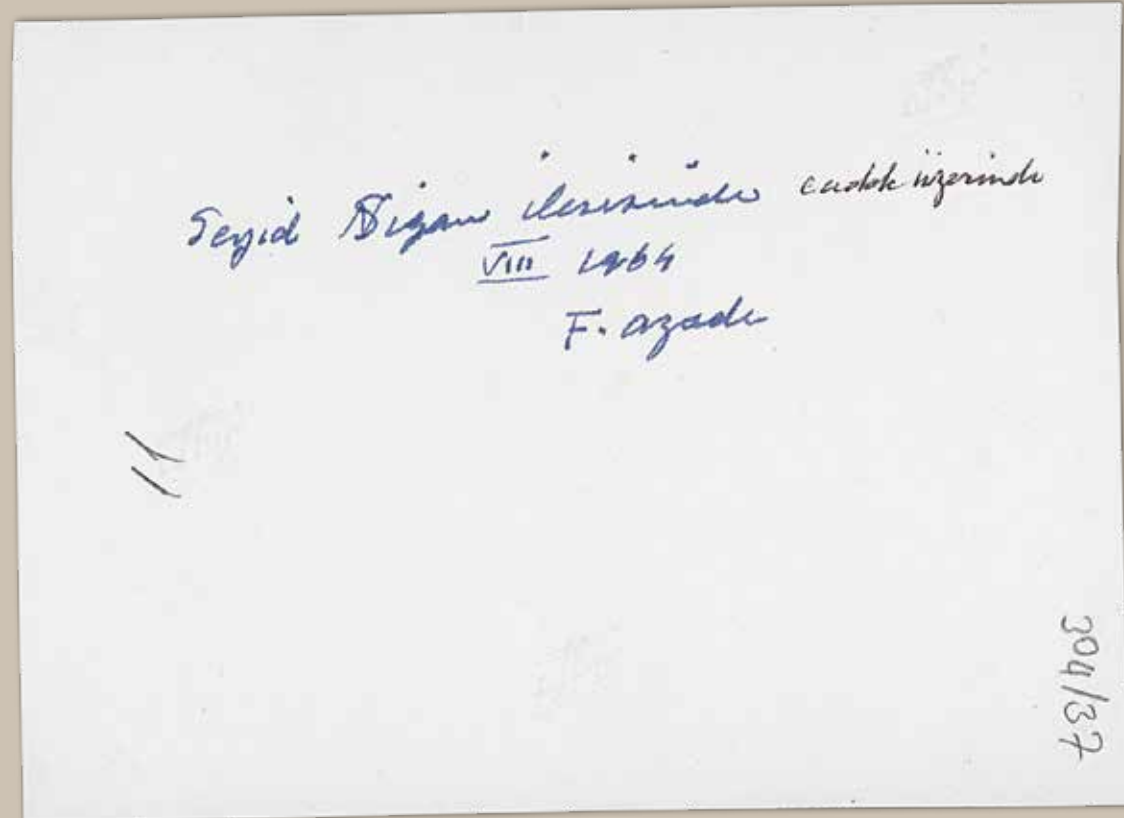 Seyid Nizam ilerisinde cadde üzerinde
VIII 1964
F. azade
11
304/37